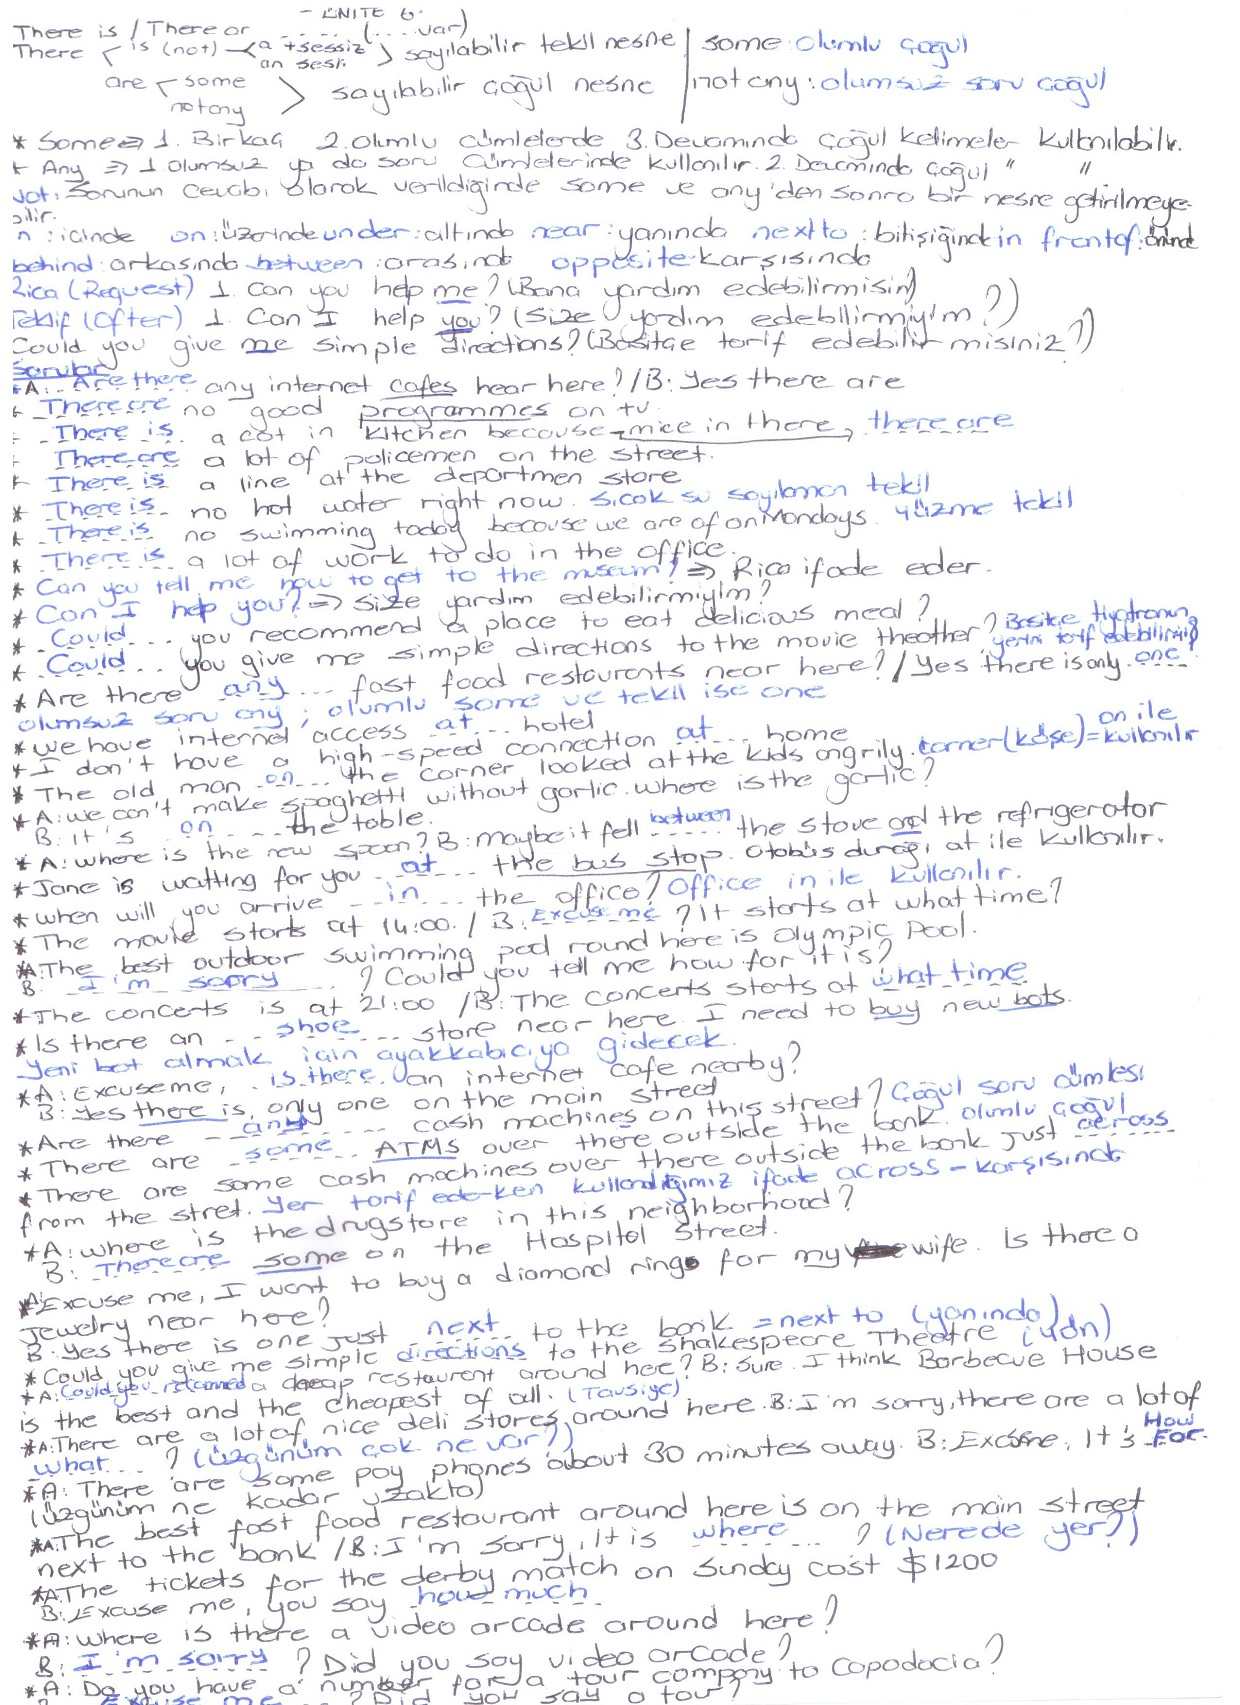 - ÜNİTE 6-
There is / There are ....... (....var)
There is (not) a + sessiz sayılabilir tekil nesne some: olumlu çoğul
an sesli
are some sayılabilir çoğul nesne not any: olumsuz soru çoğul
not any
* Some => 1. Birkaç 2. Olumlu cümlelerde 3. Devamında çoğul kelimeler kullanılabilir.
* Any => 1. Olumsuz ya da soru cümlelerinde kullanılır. 2. Devamında çoğul " "
Not: Sorunun cevabı olarak verildiğinde some ve any'den sonra bir nesne getirilmeye-
bilir.
in: içinde on: üzerinde under: altında near: yanında next to: bitişiğinde in front of: önünde
behind: arkasında between: arasında opposite: karşısında
Rica (Request) 1. Can you help me? (Bana yardım edebilirmisin)
Teklif (Offer) 1. Can I help you? (Size yardım edebilirmiyim?)
Could you give me simple directions? (Basitçe tarif edebilir misiniz?)
Sorular
*A: Are there any internet cafes hear here? / B: Yes there are
* There are no good programmes on tv.
* There is a cat in kitchen because mice in there, there are
* There are a lot of policemen on the street.
* There is a line at the departmen store
* There is no hot water right now. Sıcak su sayılaman tekil
* There is no swimming today because we are of on Mondays. yüzme tekil
* There is a lot of work to do in the office.
* Can you tell me how to get to the museum? => Rica ifade eder.
* Can I help you? => Size yardım edebilirmiyim?
* Could you recommend a place to eat delicious meal?
* Could you give me simple directions to the movie theather? Basitçe tiyatronun yerini tarif edebilirmisin?
* Are there any fast food restaurents near here? / Yes there is only one
olumsuz soru any; olumlu some ve tekil ise one
* We have internet access at hotel
* I don't have a high-speed connection at home
* The old man on the corner looked at the kids angrily. corner (köşe) = on ile kullanılır
* A: We can't make spaghetti without garlic. where is the garlic?
B: It's on the table.
* A: where is the new spoon? B: maybe it fell between the stove and the refrigerator
* Jane is waitting for you at the bus stop. Otobüs durağı at ile kullanılır.
* when will you arrive in the office? Office in ile kullanılır.
* The movie starts at 14:00. / B: Excuse me? It starts at what time?
* A: The best outdoor swimming pool round here is Olympic Pool.
B: I'm sorry? Could you tell me how far it is?
* The concerts is at 21:00 / B: The concerts starts at what time
* Is there an shoe store near here. I need to buy new bots.
Yeni bot almak için ayakkabıcıya gidecek.
* A: Excuse me, is there an internet cafe nearby?
B: Yes there is, only one on the main street
* Are there any cash machines on this street? Çoğul soru cümlesi
* There are some ATMS over there outside the bank. olumlu çoğul
* There are some cash machines over there outside the bank just across
from the stret. Yer tarif ederken kullandığımız ifade across - karşısında
* A: where is the drugstore in this neighborhood?
B: There are some on the Hospital Street.
*A: Excuse me, I want to buy a diamond ring for my wife. Is there a
jewelry near here?
B: Yes there is one just next to the bank. = next to (yanında)
* Could you give me simple directions to the Shakespeare Theatre (yön)
* A: Could you recommend a cheap restaurant around here? B: Sure. I think Barbecue House
is the best and the cheapest of all. (Tavsiye)
*A: There are a lot of nice deli stores around here. B: I'm sorry, there are a lot of
what? (üzgünüm çok ne var?)
* A: There are some pay phones about 30 minutes away. B: Excuse me, It's How Far.
(Üzgünüm ne kadar uzakta)
*A: The best fast food restaurant around here is on the main street
next to the bank / B: I'm sorry, It is where? (Nerede yer?)
*A: The tickets for the derby match on Sunday cost $1200
B: Excuse me, you say how much
*A: where is there a video arcade around here?
B: I'm sorry? Did you say video arcade?
*A: Do you have a number for a tour company to Capadocia?
Excuse me? Did you say a tour?